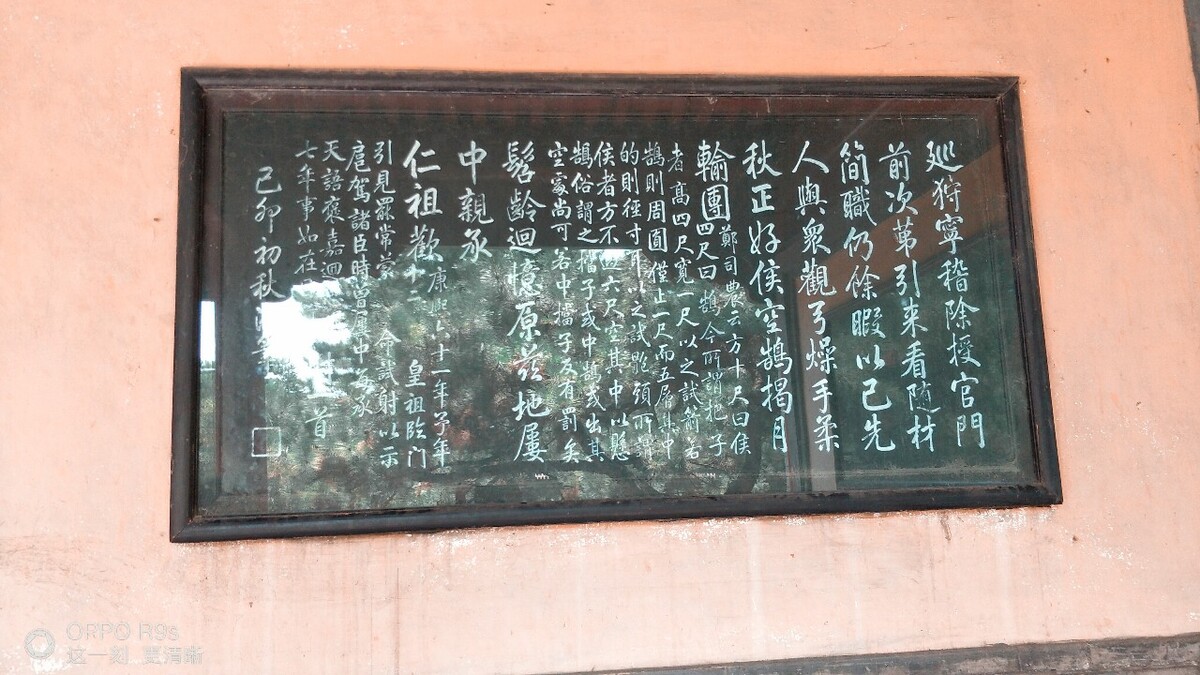 巡狩寧稽除授官門
前次第引来看随材
簡職仍餘暇以己先
人與衆觀弓燥手柔
秋正好侯空鵠揭月
輪團
鄭司農云方十尺曰侯
四尺曰鵠今所謂把子
者高四尺寛一尺以之試箭若
鵠則周圍僅止一尺而五層其中
的則徑寸耳以之試骲頭所謂
侯者方不過六尺空其中以懸
鵠俗謂之擋子或中鵠或出其
空處尚可若中擋子反有罰矣
髫齡迴憶原兹地屢
中親承
仁祖歡
康熙六十一年予年
十二 皇祖臨門
引見罷常
命試射以示
扈駕諸臣時曾屢中每承
天語褒嘉迴
七年事如在
己卯初秋
首
ORPO R9s
这一刻 更清晰